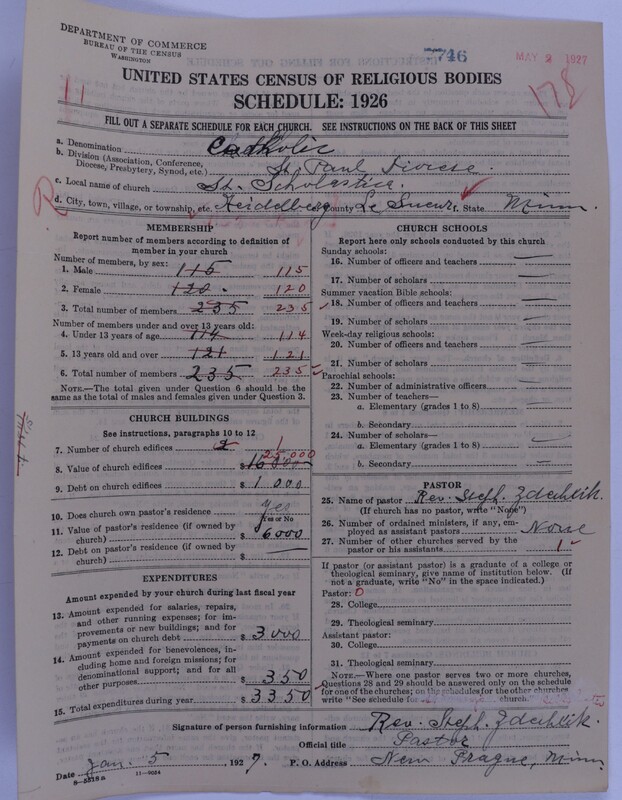 DEPARTMENT OF COMMERCE
BUREAU OF THE CENSUS
WASHINGTON
746
MAY 2 1927
11
178
UNITED STATES CENSUS OF RELIGIOUS BODIES
SCHEDULE: 1926
FILL OUT A SEPARATE SCHEDULE FOR EACH CHURCH. SEE INSTRUCTIONS ON THE BACK OF THIS SHEET
a. Denomination Catholic
b. Division (Association, Conference, Diocese, Presbytery, Synod, etc.) St. Paul Diocese
c. Local name of church St. Scholastica.
d. City, town, village, or township, etc. Heidelberg e. County Le Sueur f. State Minn.
MEMBERSHIP
Report number of members according to definition of
member in your church
Number of members, by sex:
1. Male 115 115
2. Female 120 120
3. Total number of members 235 235
Number of members under and over 13 years old:
4. Under 13 years of age 114 114
5. 13 years old and over 121 121
6. Total number of members 235 235
NOTE.—The total given under Question 6 should be the
same as the total of males and females given under Question 3.
CHURCH BUILDINGS
See instructions, paragraphs 10 to 12
7. Number of church edifices 2 1
25000
8. Value of church edifices $
9. Debt on church edifices $ 1 000
10. Does church own pastor's residence yes
Yes or No
11. Value of pastor's residence (if owned by
church) $ 6000
12. Debt on pastor's residence (if owned by
church) $
EXPENDITURES
Amount expended by your church during last fiscal year
13. Amount expended for salaries, repairs,
and other running expenses; for im-
provements or new buildings; and for
payments on church debt $ 3000
14. Amount expended for benevolences, in-
cluding home and foreign missions; for
denominational support; and for all
other purposes $ 350
15. Total expenditures during year $ 3350
CHURCH SCHOOLS
Report here only schools conducted by this church
Sunday schools:
16. Number of officers and teachers
17. Number of scholars
Summer vacation Bible schools:
18. Number of officers and teachers
19. Number of scholars
Week-day religious schools:
20. Number of officers and teachers
21. Number of scholars
Parochial schools:
22. Number of administrative officers
23. Number of teachers—
a. Elementary (grades 1 to 8)
b. Secondary
24. Number of scholars—
a. Elementary (grades 1 to 8)
b. Secondary
PASTOR
25. Name of pastor Rev. Steph. Zdechlik.
(If church has no pastor, write "None")
26. Number of ordained ministers, if any, em-
ployed as assistant pastors None
27. Number of other churches served by the
pastor or his assistants 1
If pastor (or assistant pastor) is a graduate of a college or
theological seminary, give name of institution below. (If
not a graduate, write "No" in the space indicated.)
Pastor: 0
28. College
29. Theological seminary
Assistant pastor:
30. College
31. Theological seminary
NOTE.—Where one pastor serves two or more churches,
Questions 28 and 29 should be answered only on the schedule
for one of the churches; on the schedules for the other churches
write "See schedule for church."
Signature of person furnishing information Rev. Steph. Zdechlik.
Official title Pastor
Date Jan. 5 1927. P. O. Address New Prague, Minn.
8—5518a 11—9024